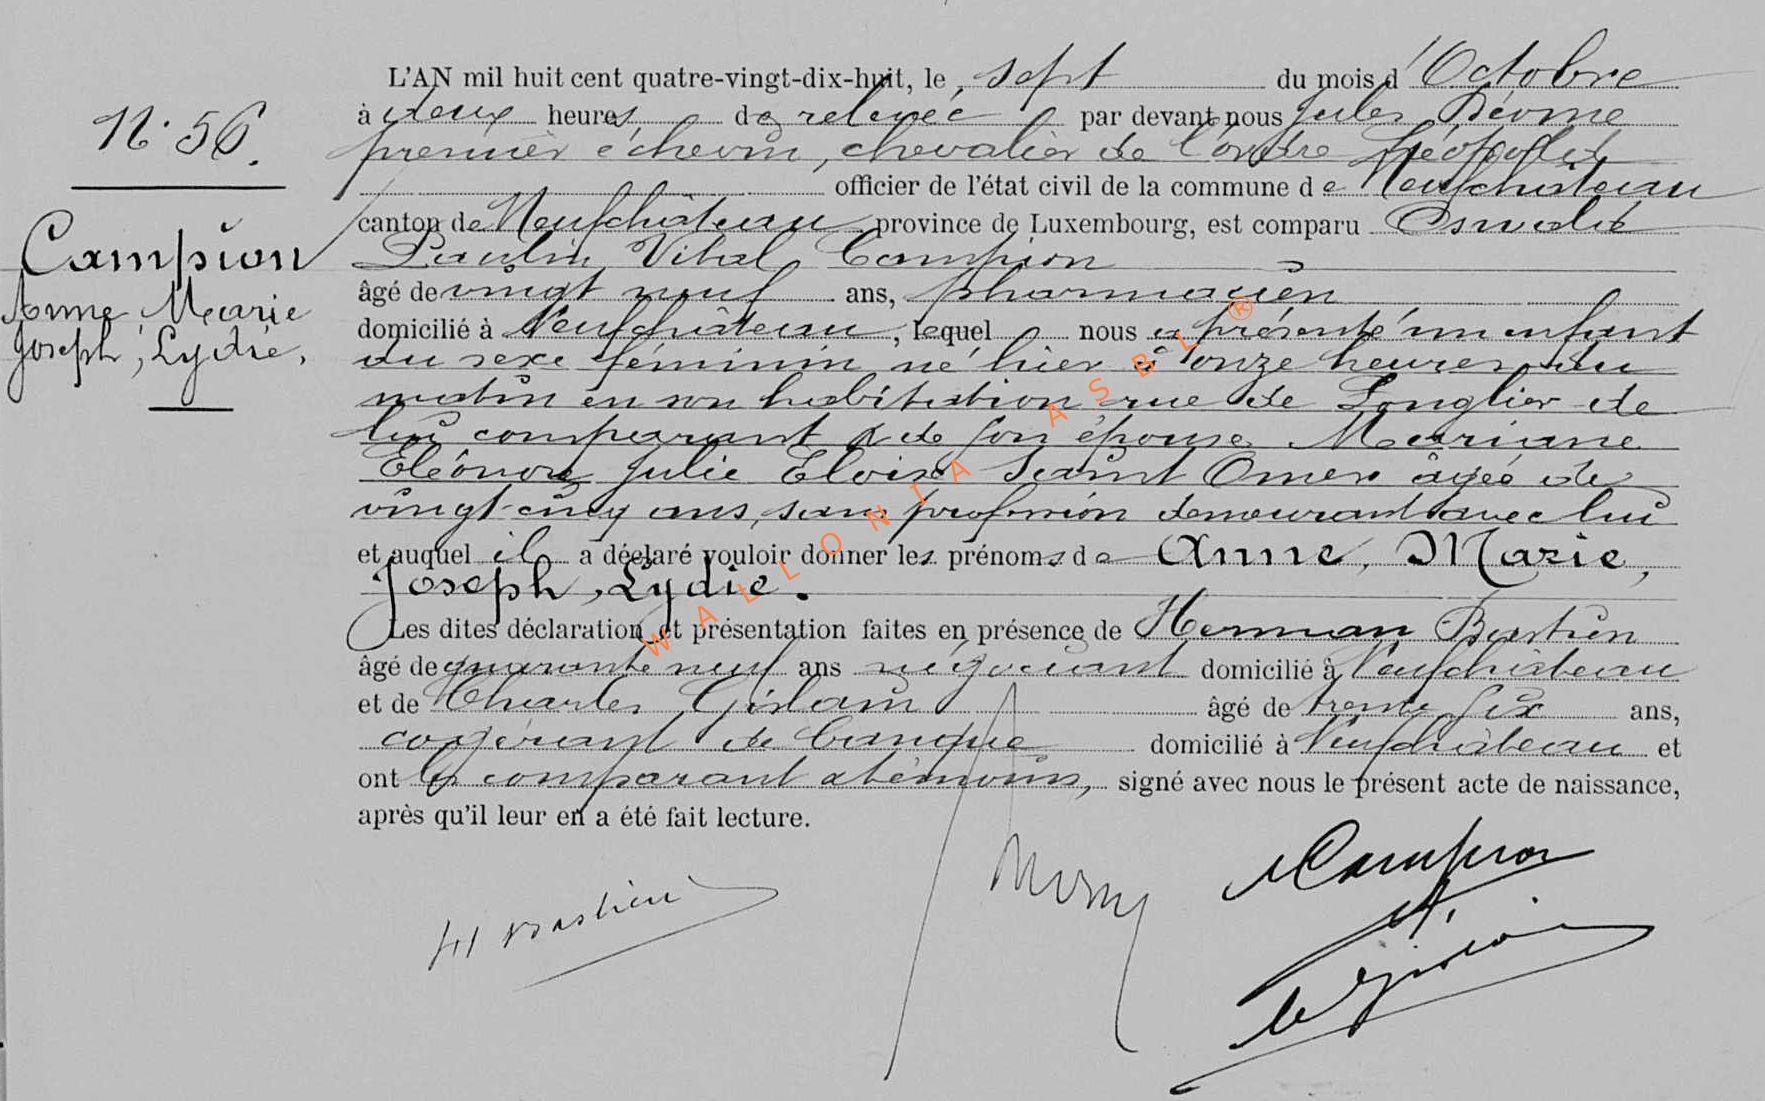 N° 56.
Campion
Anne, Marie
Joseph, Lydie.
L'AN mil huit cent quatre-vingt-dix-huit, le sept du mois d'Octobre
à deux heures de relevée par devant nous Jules
premier échevin, chevalier de l'ordre Léopold
officier de l'état civil de la commune de Neufchâteau
canton de Neufchâteau province de Luxembourg, est comparu Oswald
Paulin Vital Campion
âgé de vingt neuf ans, pharmacien
domicilié à Neufchâteau, lequel nous a présenté un enfant
du sexe féminin né hier à onze heures du
matin en son habitation rue de Longlier de
lui comparant & de son épouse Mariane
Eléonore Julie Eloise Saint Omer âgée de
vingt-cinq ans, sans profession demeurant avec lui
et auquel il a déclaré vouloir donner les prénoms de Anne, Marie,
Joseph, Lydie.
Les dites déclaration et présentation faites en présence de Herman Bastien
âgé de quarante neuf ans négociant domicilié à Neufchâteau
et de Charles Gislain âgé de trente six ans,
cogérant de banque domicilié à Neufchâteau et
ont les comparant & témoins, signé avec nous le présent acte de naissance,
après qu'il leur en a été fait lecture.
Campion
H Bastien
WALLONIA ASBL ®